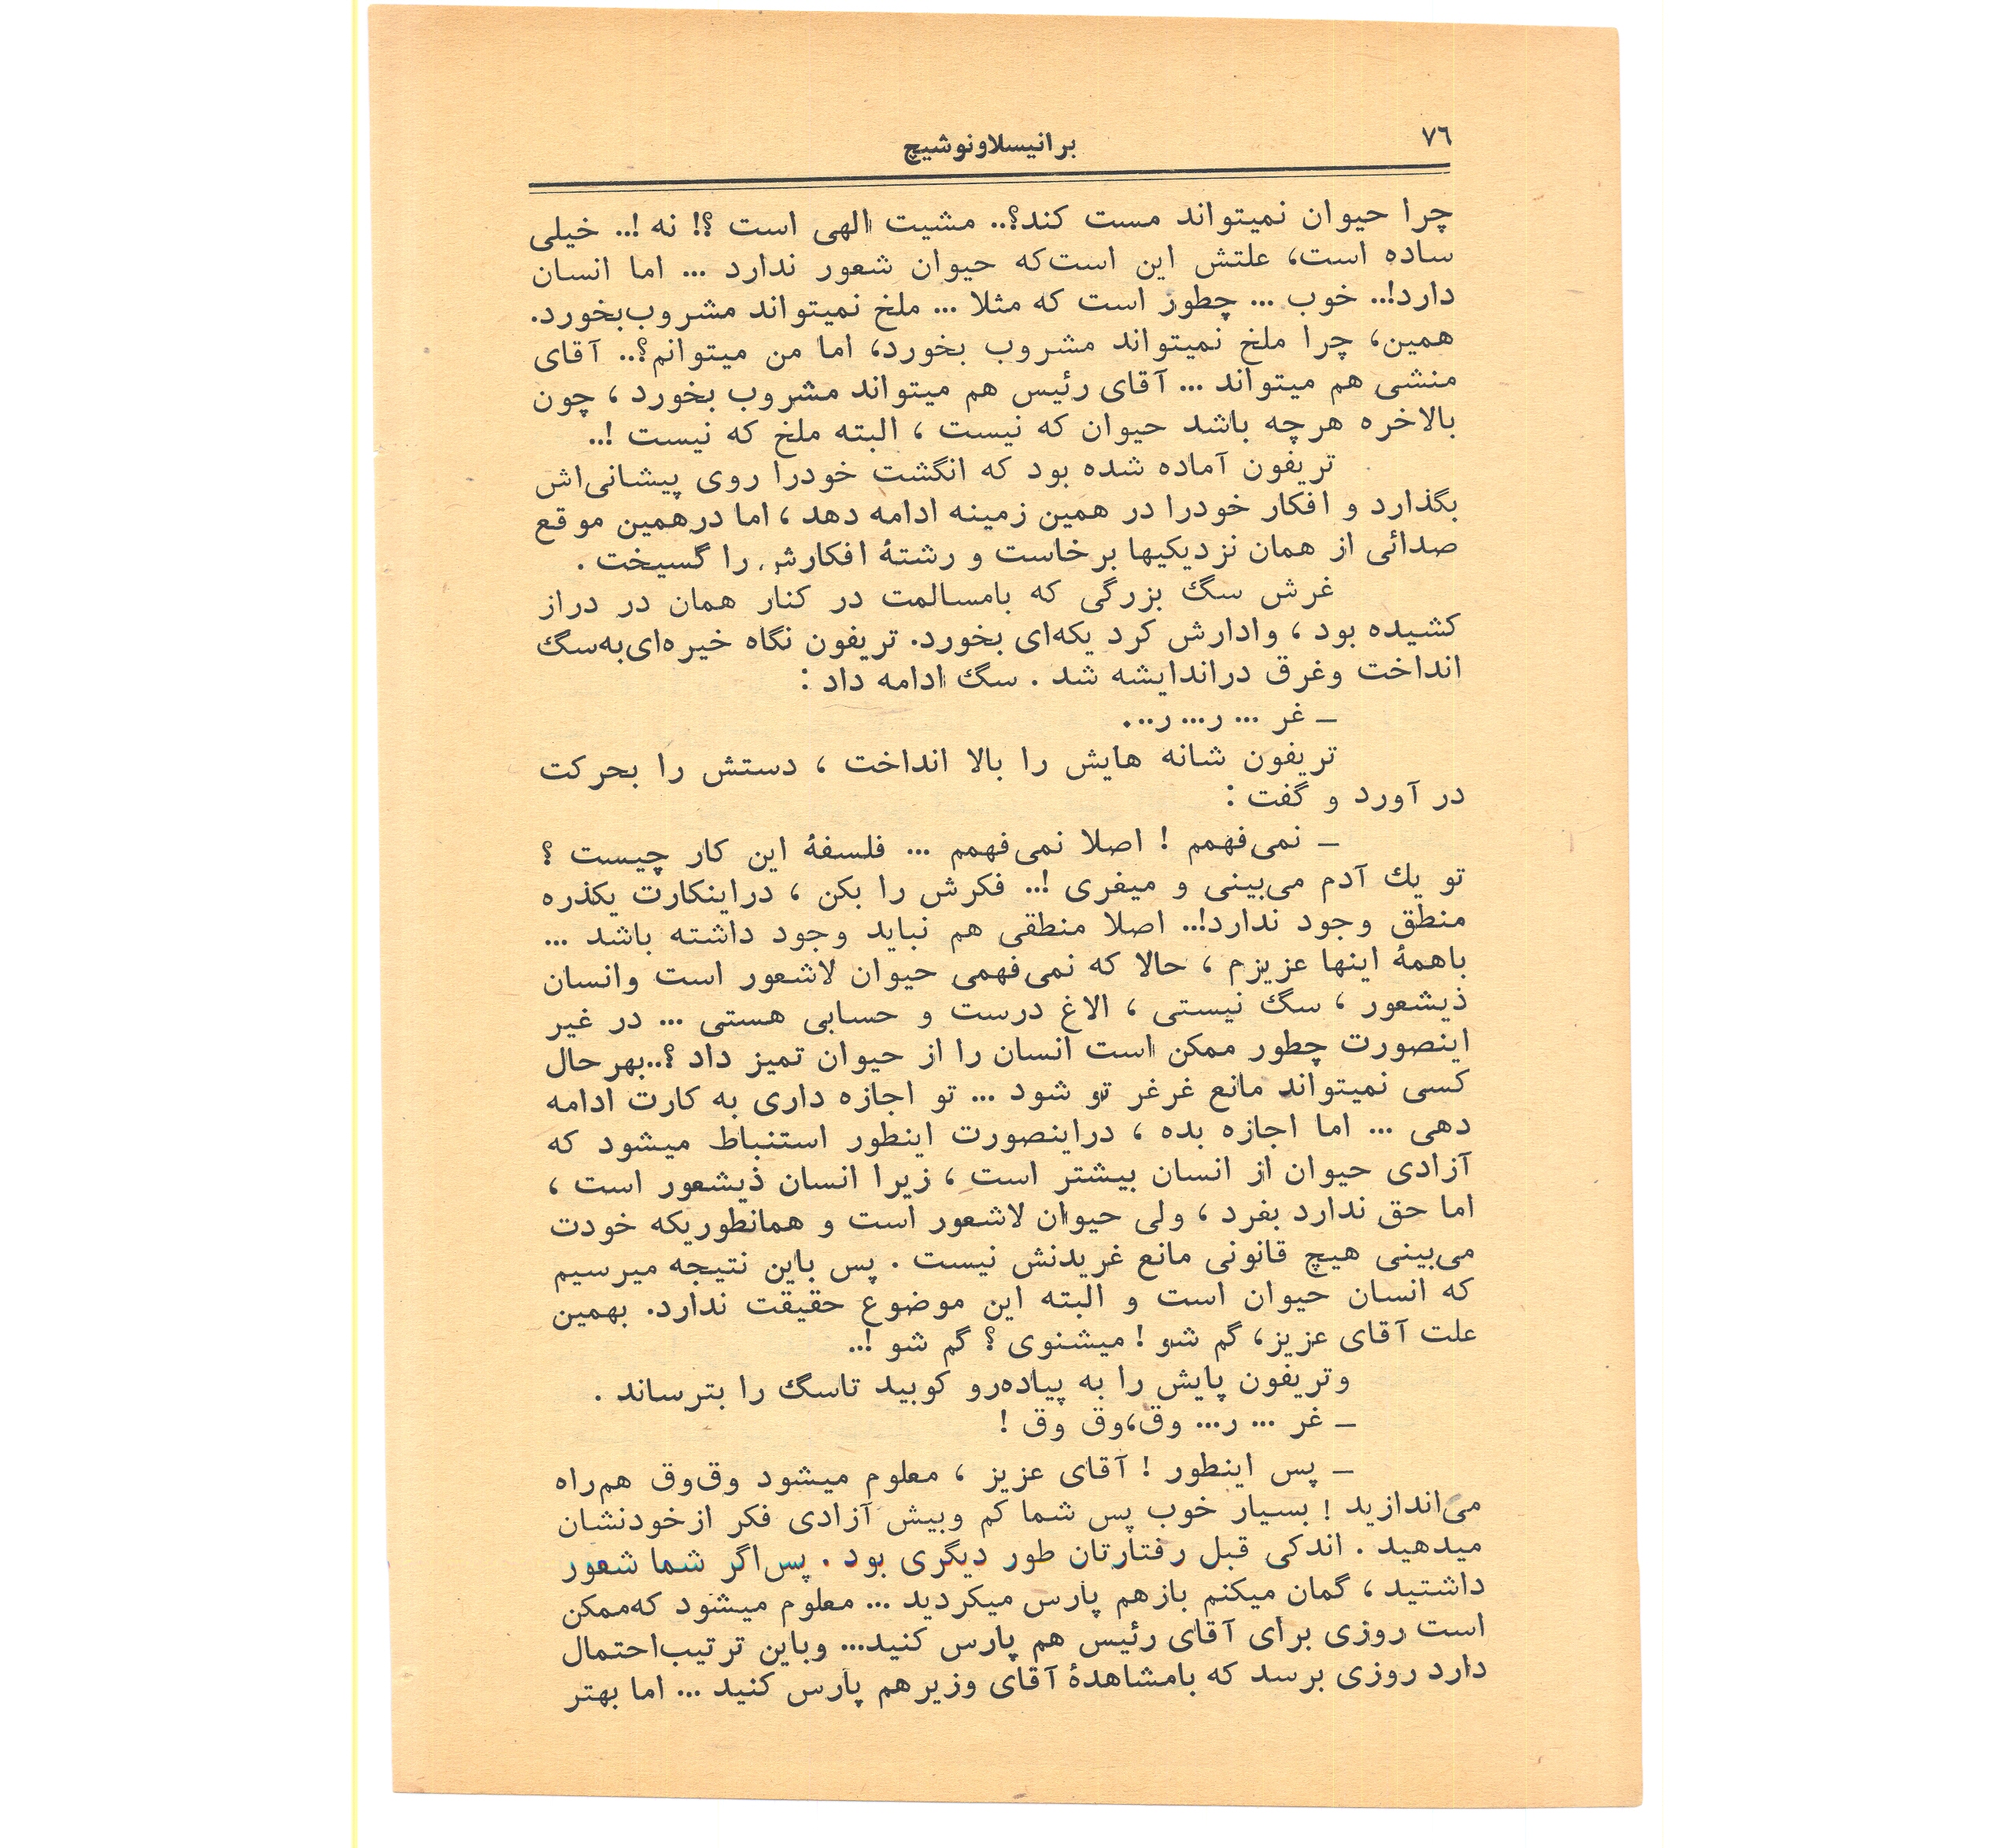 ۷۶
برانیسلاونوشیچ
چرا حیوان نمیتواند مست کند؟.. مشیت الهی است ؟! نه !.. خیلی
ساده است، علتش این است‌که حیوان شعور ندارد ... اما انسان
دارد!.. خوب ... چطور است که مثلا ... ملخ نمیتواند مشروب‌بخورد.
همین، چرا ملخ نمیتواند مشروب بخورد، اما من میتوانم؟.. آقای
منشی هم میتواند ... آقای رئیس هم میتواند مشروب بخورد ، چون
بالاخره هرچه باشد حیوان که نیست ، البته ملخ که نیست !..
تریفون آماده شده بود که انگشت خودرا روی پیشانی‌اش
بگذارد و افکار خودرا در همین زمینه ادامه دهد ، اما درهمین موقع
صدائی از همان نزدیکیها برخاست و رشتهٔ افکارش را گسیخت .
غرش سگ بزرگی که بامسالمت در کنار همان در دراز
کشیده بود ، وادارش کرد یکه‌ای بخورد. تریفون نگاه خیره‌ای‌به‌سگ
انداخت وغرق دراندایشه شد . سگ ادامه داد :
ـ غر ... ر... ر...
تریفون شانه هایش را بالا انداخت ، دستش را بحرکت
در آورد و گفت :
ـ نمی‌فهمم ! اصلا نمی‌فهمم ... فلسفهٔ این کار چیست ؟
تو یك آدم می‌بینی و میغری !.. فکرش را بکن ، دراینکارت یکذره
منطق وجود ندارد!.. اصلا منطقی هم نباید وجود داشته باشد ...
باهمهٔ اینها عزیزم ، حالا که نمی‌فهمی حیوان لاشعور است وانسان
ذیشعور ، سگ نیستی ، الاغ درست و حسابی هستی ... در غیر
اینصورت چطور ممکن است انسان را از حیوان تمیز داد ؟..بهرحال
کسی نمیتواند مانع غرغر تو شود ... تو اجازه داری به کارت ادامه
دهی ... اما اجازه بده ، دراینصورت اینطور استنباط میشود که
آزادی حیوان از انسان بیشتر است ، زیرا انسان ذیشعور است ،
اما حق ندارد بغرد ، ولی حیوان لاشعور است و همانطوریکه خودت
می‌بینی هیچ قانونی مانع غریدنش نیست . پس باین نتیجه میرسیم
که انسان حیوان است و البته این موضوع حقیقت ندارد. بهمین
علت آقای عزیز، گم شو ! میشنوی ؟ گم شو !..
وتریفون پایش را به پیاده‌رو کوبید تاسگ را بترساند .
ـ غر ... ر... وق،وق وق !
ـ پس اینطور ! آقای عزیز ، معلوم میشود وق‌وق هم‌راه
می‌اندازید ! بسیار خوب پس شما کم وبیش آزادی فکر ازخودنشان
میدهید . اندکی قبل رفتارتان طور دیگری بود . پس‌اگر شما شعور
داشتید ، گمان میکنم بازهم پارس میکردید ... معلوم میشود که‌ممکن
است روزی برای آقای رئیس هم پارس کنید... وباین ترتیب‌احتمال
دارد روزی برسد که بامشاهدهٔ آقای وزیرهم پارس کنید ... اما بهتر